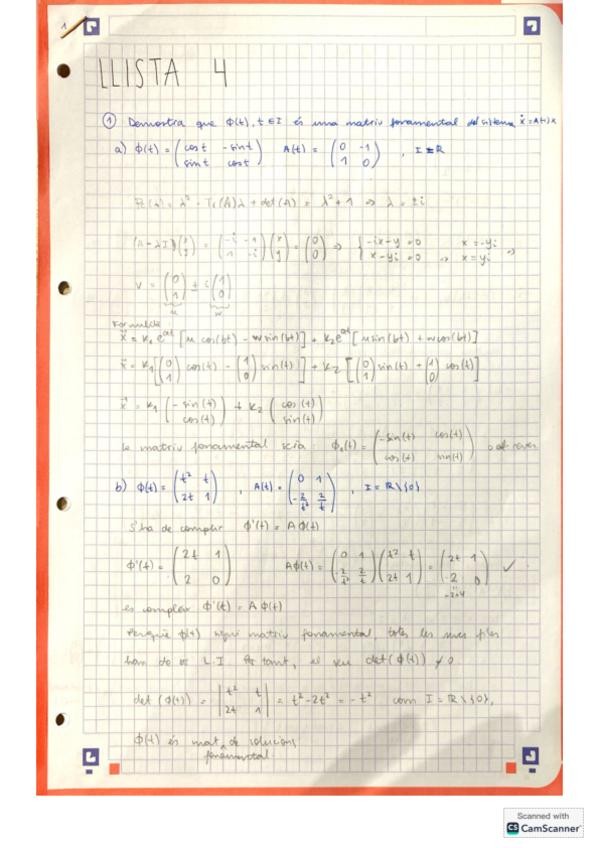 1
LLISTA 4
① Demostra que ϕ(t), t ∈ I és una matriu fonamental del sistema ẋ = A(t)x
a) ϕ(t) = (cos t -sin t; sin t cos t) A(t) = (0 -1; 1 0), I = ℝ
P_A(λ) = λ² - Tr(A)λ + det(A) = λ² + 1 ⇒ λ = ±i
(A - λI)(x; y) = (-i -1; 1 -i)(x; y) = (0; 0) ⇒ { -ix - y = 0; x - yi = 0 ⇒ x = yi ⇒
V = (0; 1) ± i(1; 0)
u w
Fórmula
x⃗ = k₁e^{at}[u cos(bt) - w sin(bt)] + k₂e^{at}[u sin(bt) + w cos(bt)]
x⃗ = k₁[(0; 1) cos(t) - (1; 0) sin(t)] + k₂[(0; 1) sin(t) + (1; 0) cos(t)]
x⃗ = k₁(-sin(t); cos(t)) + k₂(cos(t); sin(t))
la matriu fonamental seria: (-sin(t) cos(t); cos(t) sin(t))
b) ϕ(t) = (t² t; 2t 1), A(t) = (0 1; -2/t² 2/t), I = ℝ\{0}
S'ha de complir ϕ'(t) = Aϕ(t)
ϕ'(t) = (2t 1; 2 0) Aϕ(t) = (0 1; -2/t² 2/t)(t² t; 2t 1) = (2t 1; 2 0) ✓
-2+4
es compleix ϕ'(t) = Aϕ(t)
Perquè ϕ(t) sigui matriu fonamental, totes les seves files
han de ser L.I. Per tant, el seu det(ϕ(t)) ≠ 0
det(ϕ(t)) = |t² t; 2t 1| = t² - 2t² = -t² com I = ℝ\{0},
ϕ(t) és mat. de solucions
fonamental.
Scanned with
CS CamScanner